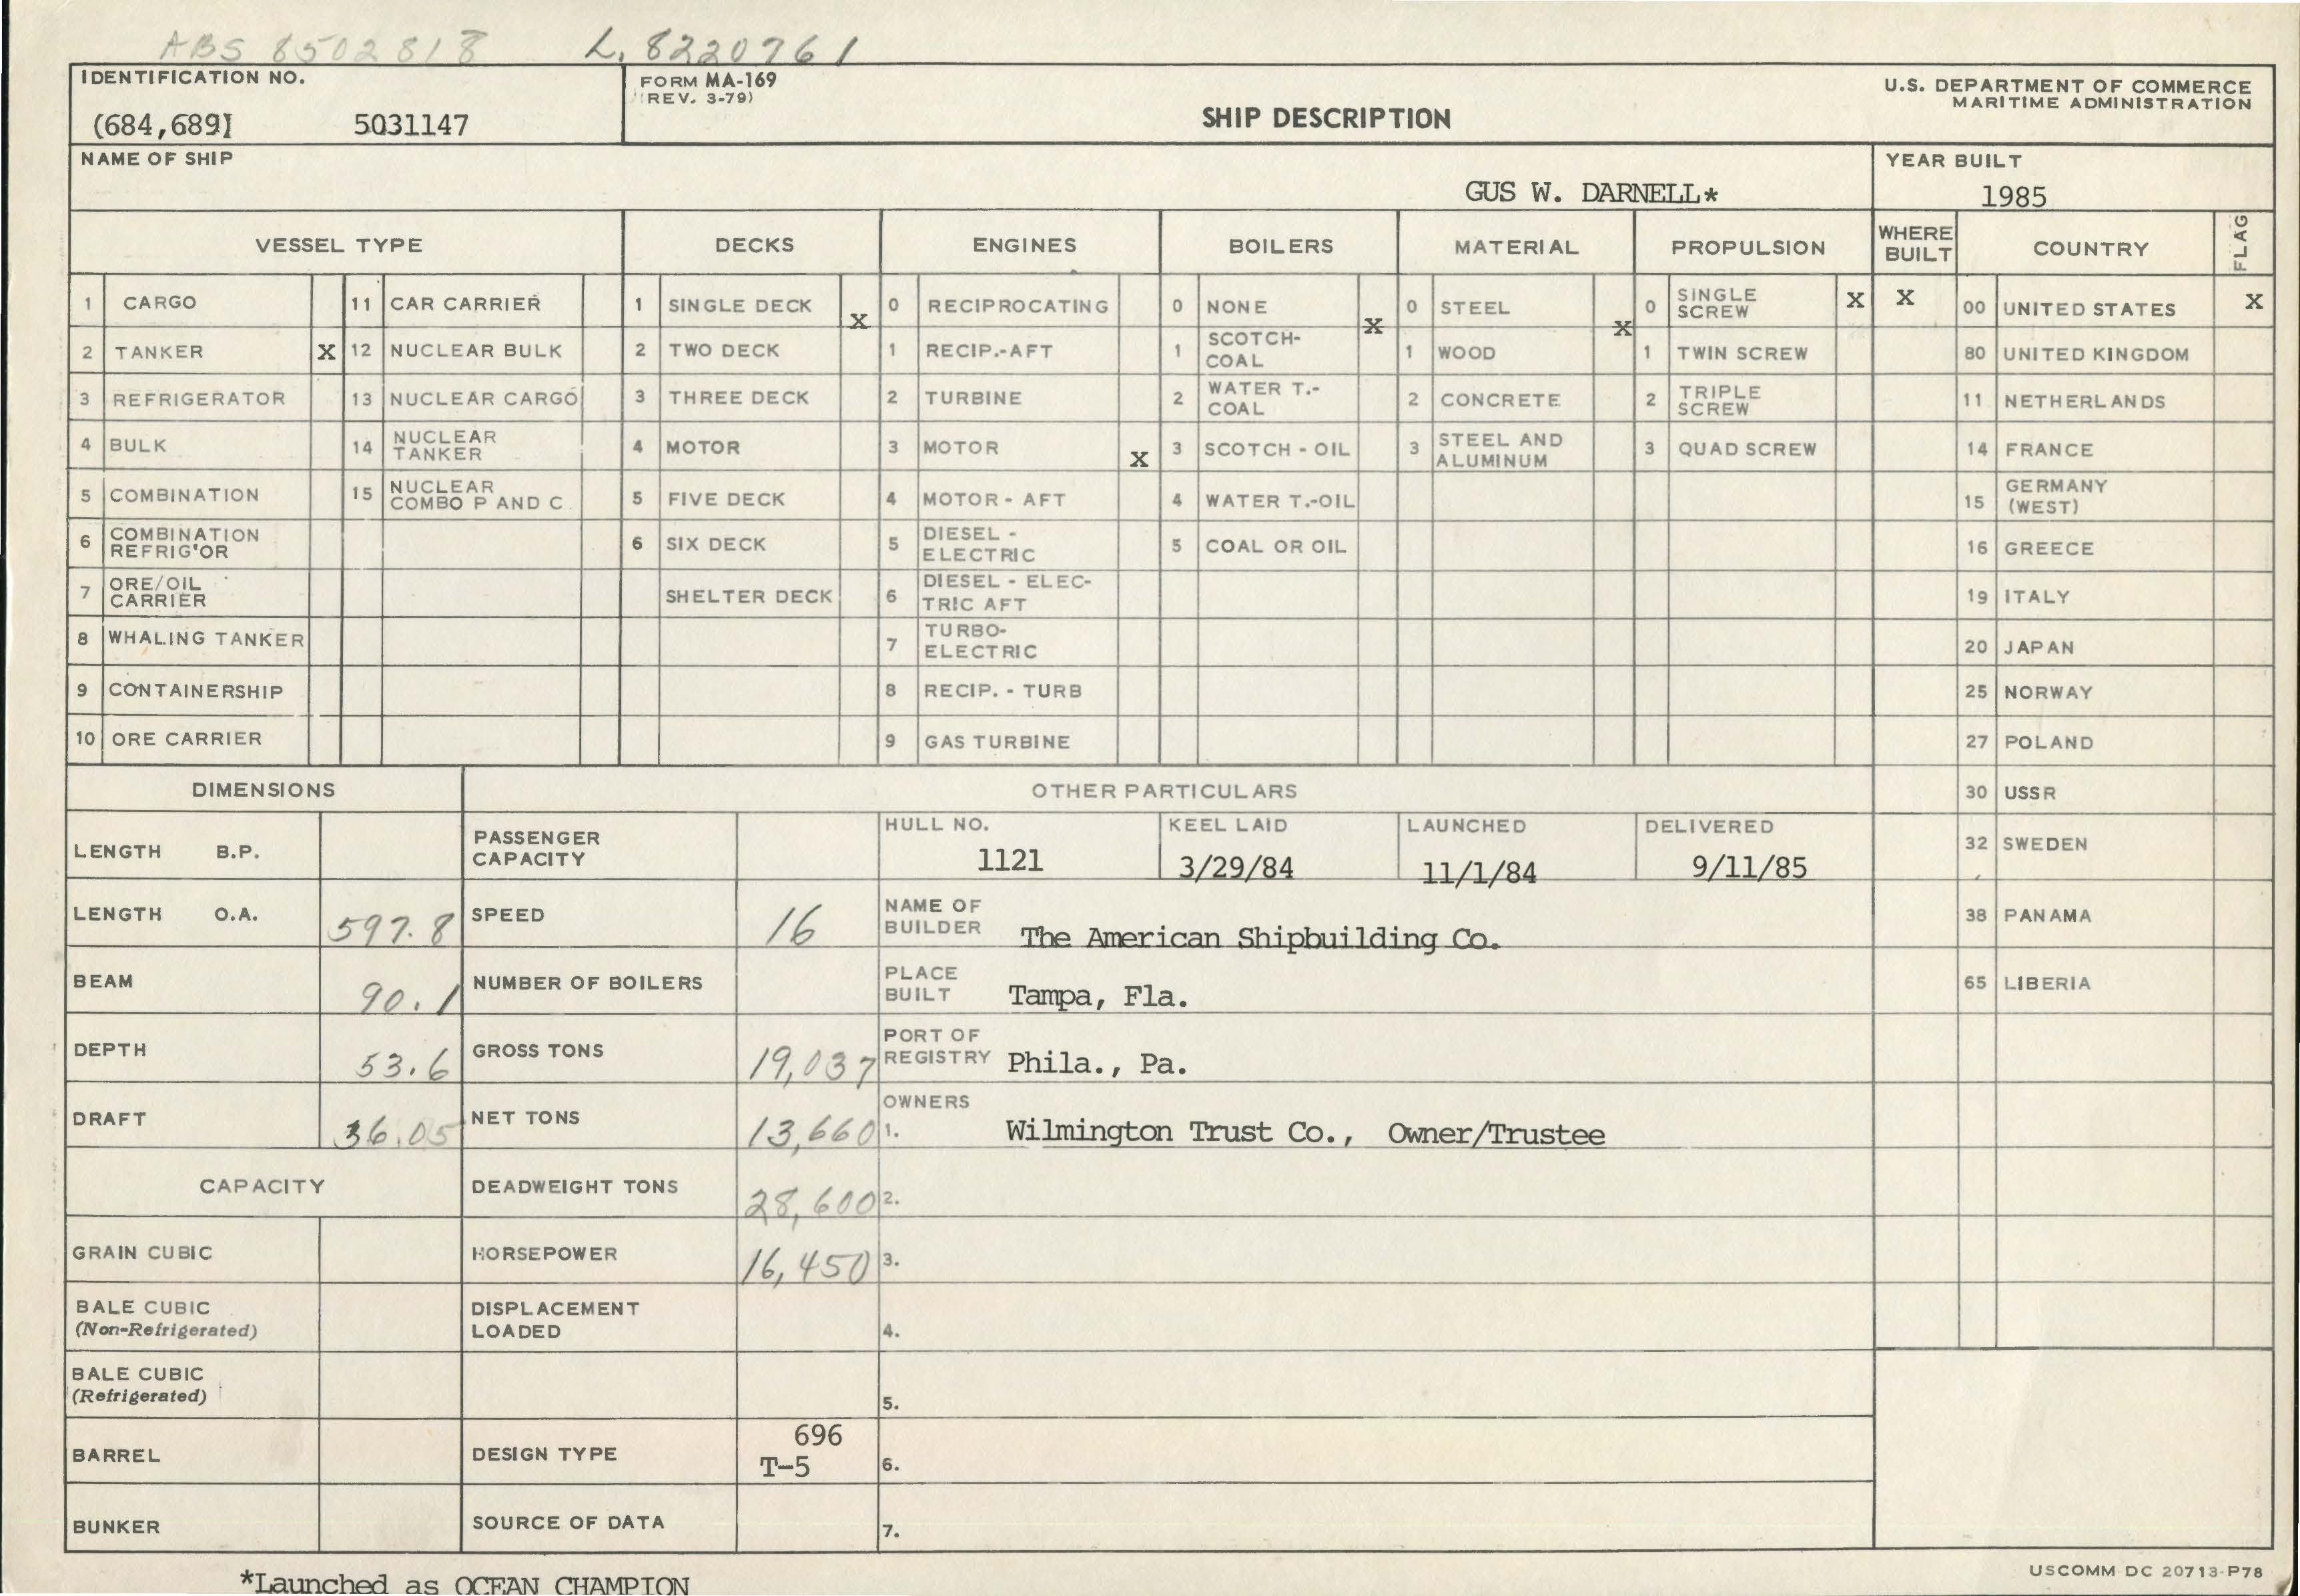 ABS 8502818 L. 8220761
IDENTIFICATION NO.
(684,689] 5031147
FORM MA-169
(REV. 3-79)
SHIP DESCRIPTION
U.S. DEPARTMENT OF COMMERCE
MARITIME ADMINISTRATION
NAME OF SHIP
GUS W. DARNELL*
YEAR BUILT
1985
VESSEL TYPE DECKS ENGINES BOILERS MATERIAL PROPULSION WHERE BUILT COUNTRY FLAG
1 CARGO 11 CAR CARRIER 1 SINGLE DECK X 0 RECIPROCATING 0 NONE X 0 STEEL X 0 SINGLE SCREW X X 00 UNITED STATES X
2 TANKER X 12 NUCLEAR BULK 2 TWO DECK 1 RECIP.-AFT 1 SCOTCH-COAL 1 WOOD 1 TWIN SCREW 80 UNITED KINGDOM
3 REFRIGERATOR 13 NUCLEAR CARGO 3 THREE DECK 2 TURBINE 2 WATER T.-COAL 2 CONCRETE 2 TRIPLE SCREW 11 NETHERLANDS
4 BULK 14 NUCLEAR TANKER 4 MOTOR 3 MOTOR X 3 SCOTCH - OIL 3 STEEL AND ALUMINUM 3 QUAD SCREW 14 FRANCE
5 COMBINATION 15 NUCLEAR COMBO P AND C 5 FIVE DECK 4 MOTOR - AFT 4 WATER T.-OIL 15 GERMANY (WEST)
6 COMBINATION REFRIG'OR 6 SIX DECK 5 DIESEL - ELECTRIC 5 COAL OR OIL 16 GREECE
7 ORE/OIL CARRIER SHELTER DECK 6 DIESEL - ELEC-TRIC AFT 19 ITALY
8 WHALING TANKER 7 TURBO-ELECTRIC 20 JAPAN
9 CONTAINERSHIP 8 RECIP. - TURB 25 NORWAY
10 ORE CARRIER 9 GAS TURBINE 27 POLAND
DIMENSIONS OTHER PARTICULARS 30 USSR
LENGTH B.P. PASSENGER CAPACITY HULL NO. 1121 KEEL LAID 3/29/84 LAUNCHED 11/1/84 DELIVERED 9/11/85 32 SWEDEN
LENGTH O.A. 597.8 SPEED 16 NAME OF BUILDER The American Shipbuilding Co. 38 PANAMA
BEAM 90.1 NUMBER OF BOILERS PLACE BUILT Tampa, Fla. 65 LIBERIA
DEPTH 53.6 GROSS TONS 19,037 PORT OF REGISTRY Phila., Pa.
DRAFT 36.05 NET TONS 13,660 OWNERS 1. Wilmington Trust Co., Owner/Trustee
CAPACITY DEADWEIGHT TONS 28,600 2.
GRAIN CUBIC HORSEPOWER 16,450 3.
BALE CUBIC (Non-Refrigerated) DISPLACEMENT LOADED 4.
BALE CUBIC (Refrigerated) 5.
BARREL DESIGN TYPE 696 T-5 6.
BUNKER SOURCE OF DATA 7.
*Launched as OCEAN CHAMPION
USCOMM-DC 20713-P78